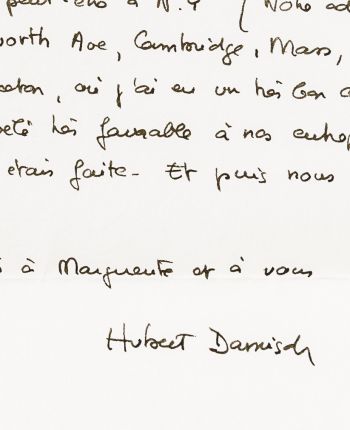 à N.Y (Notre
orth Ave, Cambridge, Mass,
où j'ai eu un très bon
très favorable à nos
etais faite - Et puis nous
à Marguerite et à vous
Hubert Damisch